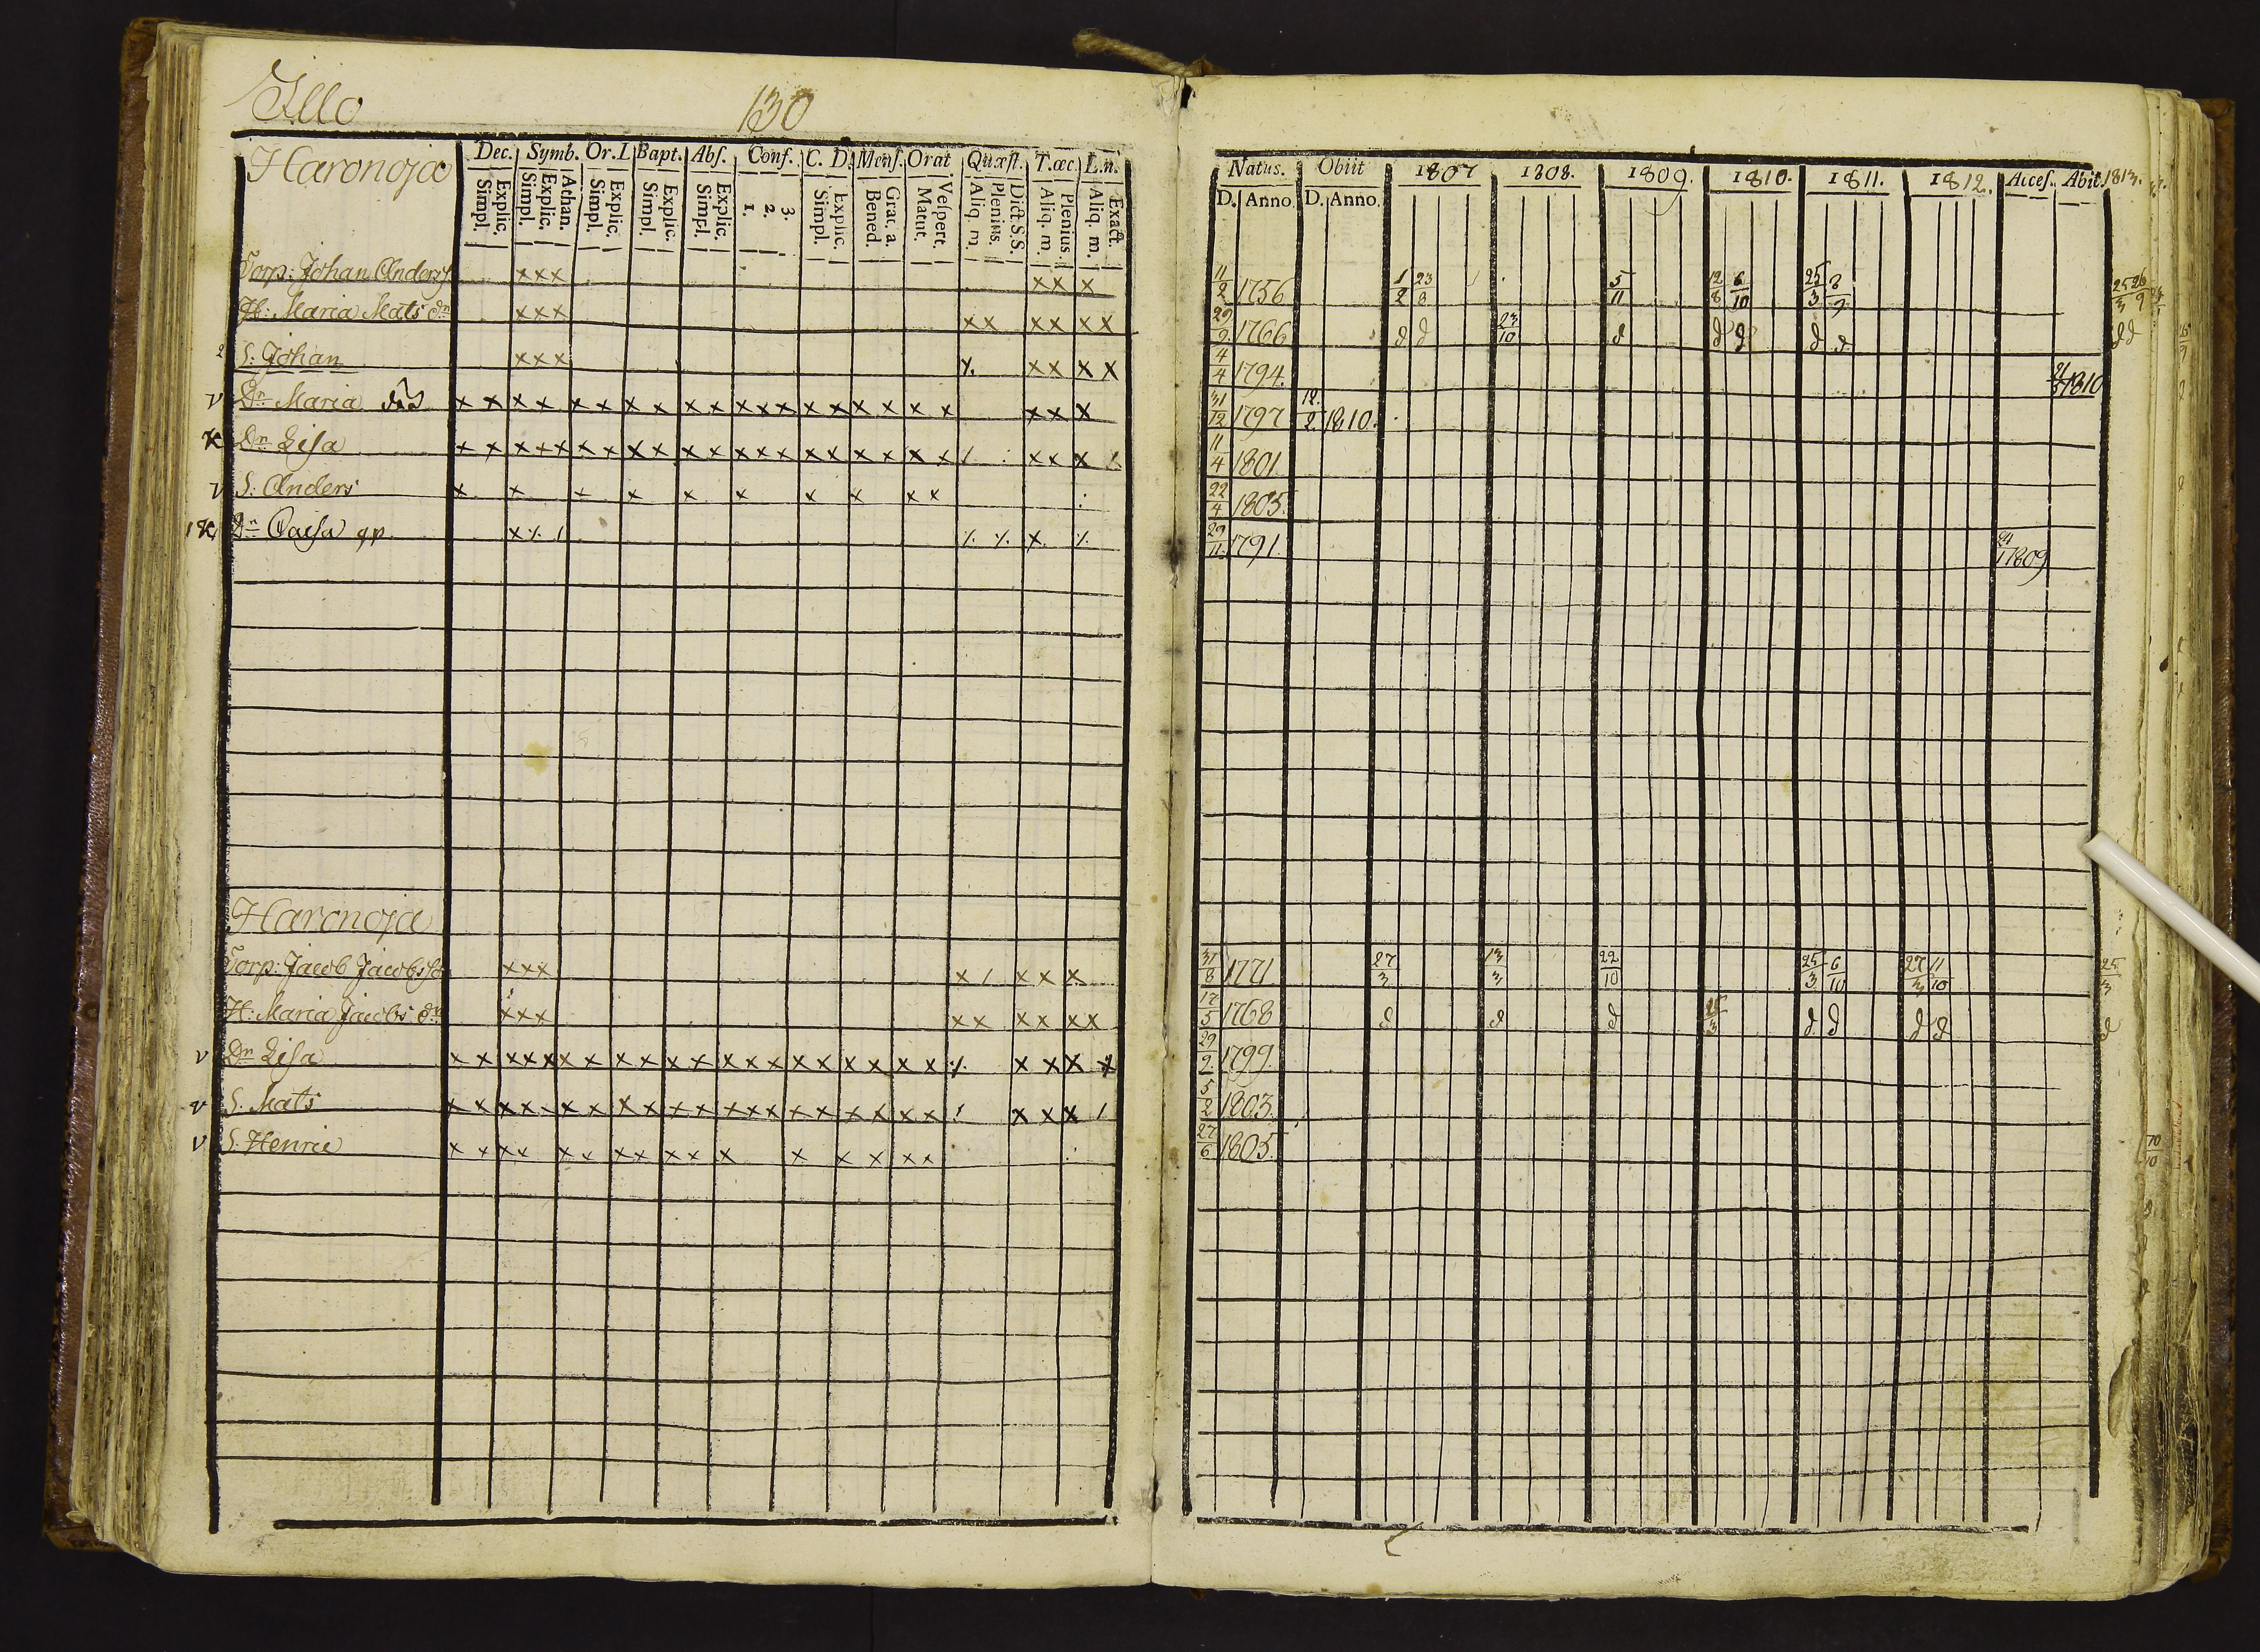 Illo 130
Haronoja Dec. Symb. Or. L Bapt. Abſ. Conf. C. D. Menſ. Orat Quæſt. T. œc. L. n.
Simpl. Explic. Simpl. Explic. Athan. Simpl. Explic. Simpl. Explic. Simpl. Explic. 1. 2. 3. Simpl. Explic. Bened. Grat. a. Matut. Veſpert. Aliq. m. Plenius. Dict. S. S. Aliq. m. Plenius. Aliq. m. Exact.
Natus. Obiit 1807 1808. 1809. 1810. 1811. 1812. Acceſ. Abit. 1813.
D. Anno. D. Anno.
Torp: Johan Anderſs xxx xx x 11/2 1756 1/2 23/8 5/11 12/8 6/10 25/3
H: Maria Mats dn xxx xx xx xx 29/9 1766 d d 23/10 d d d d d dd
S: Johan xxx ⁒ xx x x 4/4 1794. 1810
v Dn Maria död x x x x x x x x x x x x x x x x x x x x x x 31/12 1797 12/2 1810.
Dn Liſa x x x x x x x x x x x x x x x x x x x x x x 11/4 1801
v S: Anders x x x x x x x x x x 22/4 1805.
Dn Caiſa qp x ⁒ / ⁒ ⁒ x. ⁒ 29/11 1791. 1809
Haronoja
Torp: Jacob Jacobsſo xxx x / x x x 31/8 1771 27/3 13/3 22/10 25/3 6/10 27/3 11/10 25/3
H: Maria Jacobs dn xxx xx xx xx 17/5 1768 d d d 25/3 d d d d d
v Dn Liſa x x x x x x x x x x x x x x x x x x x x x ⁒ x x x x 29/9 1799.
v S. Mats x x x x x x x x x x x x x x x x x x x x / x x x / 5/2 1803.
v S. Henric x x x x x x x x x x x x x x x x 27/6 1805.